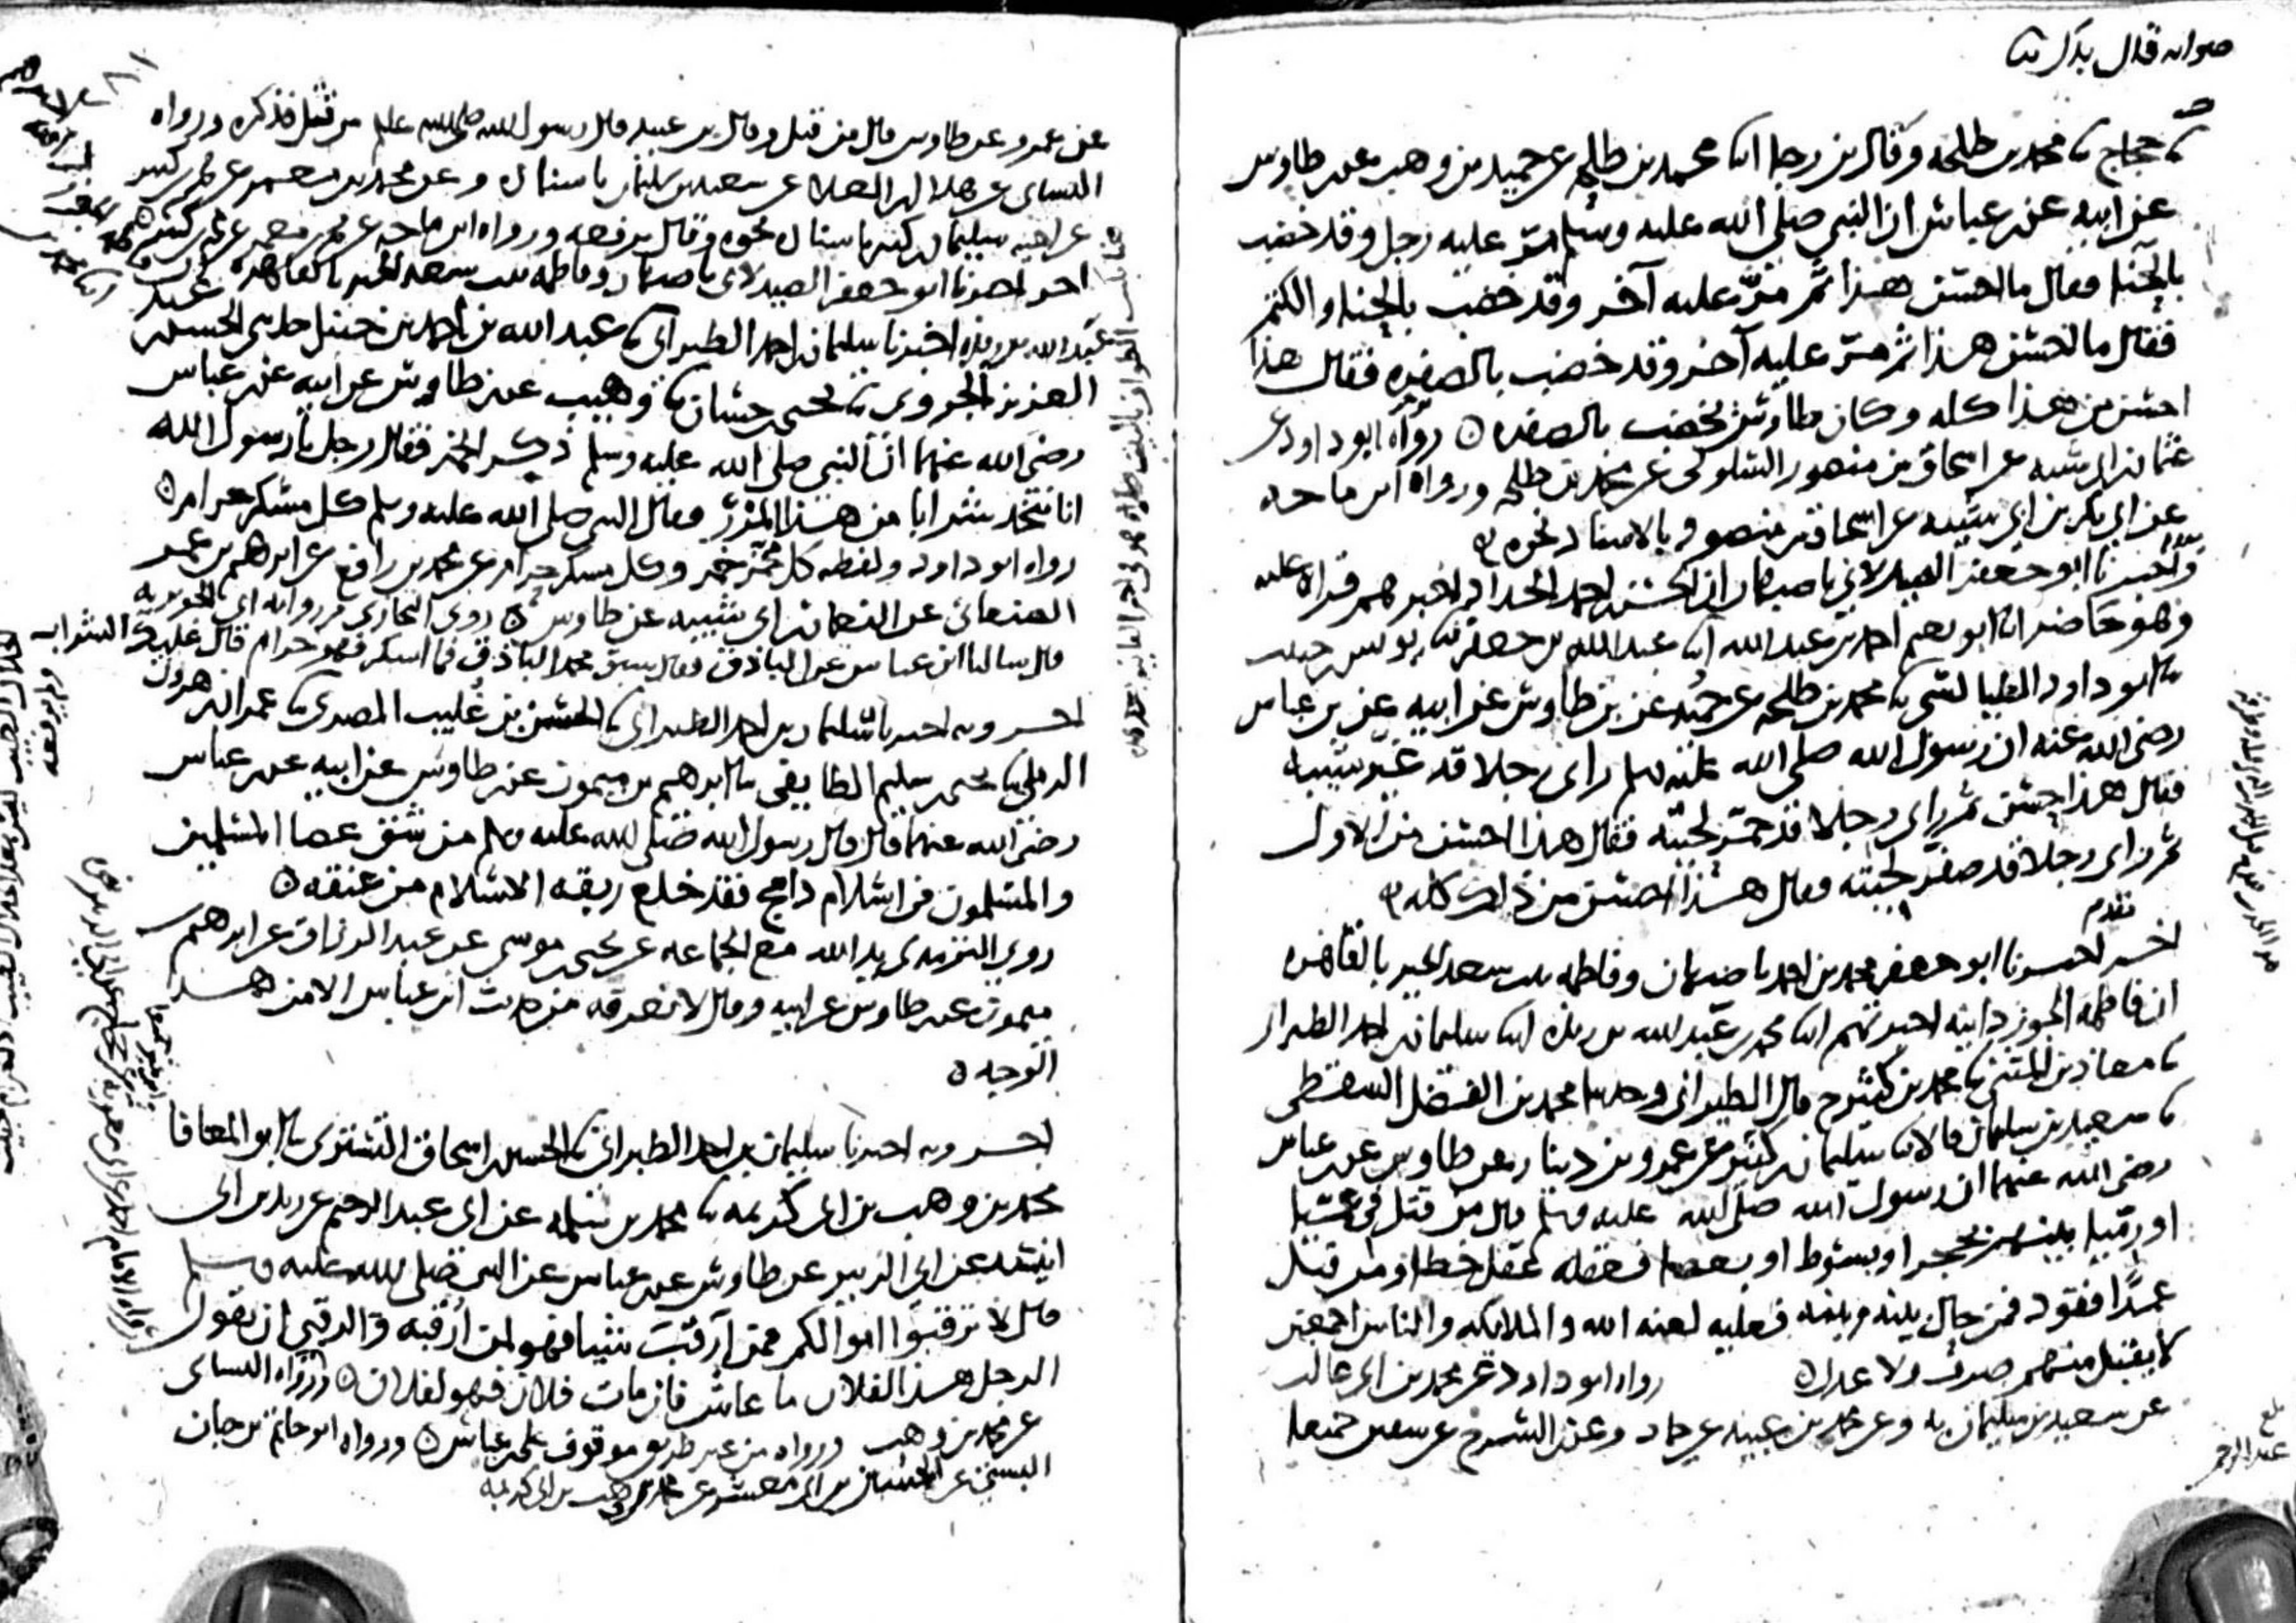 صوابه قال بدل ثنا
ثنا حجاج ثنا محمد بن طلحة وقال بن رجا انا محمد بن طلحة عن حميد بن وهب عن بن طاوس
عن ابيه عن بن عباس ان النبي صلى الله عليه وسلم مرّ عليه رجل وقد خضب
بالحنا فقال ما احسن هذا ثم مرّ عليه آخر وقد خضب بالحنا والكتم
فقال ما احسن هذا ثم مرّ عليه آخر وقد خضب بالصفره فقال هذا
احسن من هذا كله وكان طاوس يخضب بالصفره ه رواه ابو داود عن
عثمان بن ابي شيبه عن اسحاق بن منصور السلولي عن محمد بن طلحة ورواه ابن ماجه
عن ابي بكر بن ابي شيبه عن اسحاق بن منصور بالاسناد نحوه
واخبرنا ابو جعفر الصيدلاني باصبهان ان الحسن بن احمد الحداد اخبرهم قراه عليه
وهو حاضر انا ابو نعيم احمد بن عبدالله انا عبدالله بن جعفر ثنا يونس بن حبيب
ثنا ابو داود الطيالسي ثنا محمد بن طلحة عن حميد عن بن طاوس عن ابيه عن بن عباس
رضي الله عنه ان رسول الله صلى الله عليه وسلم راى رجلا قد غيّر شيبه
فقال هذا حسن ثم راى رجلا قد حمّر لحيته فقال هذا احسن من الاول
ثم راى رجلا قد صفر لحيته فقال هذا احسن من ذلك كله
تقدم
اخبرنا ابو جعفر محمد بن احمد باصبهان وفاطمه بنت سعد الخير بالقاهره
ان فاطمه الجوزدانيه اخبرتهم انا محمد بن عبدالله بن ريذه انا سليمان بن احمد الطبراني
ثنا معاذ بن المثنى ثنا محمد بن كثير ح قال الطبراني وحدثنا محمد بن الفضل السقطي
ثنا سعيد بن سليمان قالا ثنا سليمان بن كثير عن عمرو بن دينار عن طاوس عن بن عباس
رضي الله عنهما ان رسول الله صلى الله عليه وسلم قال من قتل في عميّا
او رميا بينهم بحجر او بسوط او بعصا فعقله عقل خطا ومن قتل
عمدًا فقود فمن حال بينه وبينه فعليه لعنه الله والملائكه والناس اجمعين
لا يقبل منهم صرف ولا عدل ه رواه ابو داود عن محمد بن ابي غالب
عن سعيد بن سليمان به وعن محمد بن عبيد عن حماد وعن بن السرح عن سفين جميعا
بلغ
عبد الرحمن
عن عمرو عن طاوس قال من قتل وقال بن عبيد قال رسول الله صلى الله عليه وسلم من قتل فذكره ورواه
النساي عن هلال بن العلا عن سعيد بن سليمان باسناده وعن محمد بن معمر عن محمد بن كثير
عن اخيه سليمان بن كثير باسناده نحوه وقال يرفعه ورواه ابن ماجه عن محمد بن معمر عن محمد بن كثير
اخبرنا ابو جعفر الصيدلاني باصبهان وفاطمه بنت سعد الخير بالقاهره
عبدالله بن ريذه اخبرنا سليمان بن احمد الطبراني ثنا عبدالله بن احمد بن حنبل حدثني الحسن بن عبد
العزيز الجروي ثنا يحيى بن حسان ثنا وهيب عن بن طاوس عن ابيه عن بن عباس
رضي الله عنهما ان النبي صلى الله عليه وسلم ذكر الخمر فقال رجل يا رسول الله
انا نتخذ شرابا من هذا المزر فقال النبي صلى الله عليه وسلم كل مسكر حرام ه
رواه ابو داود ولفظه كل مخمّر خمر وكل مسكر حرام عن محمد بن رافع عن ابرهيم بن عمر
الصنعاني عن النعمان بن ابي شيبه عن طاوس ه روى البخاري من روايه ابي الجويريه
قال سالت ابن عباس عن الباذق فقال سبق محمد الباذق فما اسكر فهو حرام قال عليك الشراب
اخبرنا سليمان بن احمد الطبراني ثنا الحسن بن غليب المصري ثنا عمران بن هرون
الرملي ثنا يحيى بن سليم الطايفي ثنا ابرهيم بن ميمون عن بن طاوس عن ابيه عن بن عباس
رضي الله عنهما قال قال رسول الله صلى الله عليه وسلم من شق عصا المسلمين
والمسلمون في اسلام دامج فقد خلع ربقه الاسلام من عنقه ه
روى الترمذي يد الله مع الجماعه عن يحيى بن موسى عن عبد الرزاق عن ابرهيم بن
ميمون عن بن طاوس عن ابيه وقال لا نعرفه من حديث ابن عباس الا من هذا
الوجه ه
اخبرنا سليمان بن احمد الطبراني ثنا الحسين بن اسحاق التستري ثنا ابو المعافا
محمد بن وهب بن ابي كريمه ثنا محمد بن سلمه عن ابي عبد الرحيم عن زيد بن ابي
انيسه عن ابي الزبير عن طاوس عن بن عباس عن النبي صلى الله عليه وسلم
قال لا ترقبوا اموالكم فمن ارقب شيا فهو لمن ارقبه والرقبى ان يقول
الرجل هذا لفلان ما عاش فان مات فلان فهو لفلان ه ورواه النساي
عن محمد بن وهب ورواه من غير طريق موقوف على بن عباس ه ورواه ابو حاتم بن حبان
البستي عن الحسين بن ابي معشر عن محمد بن وهب بن ابي كريمه